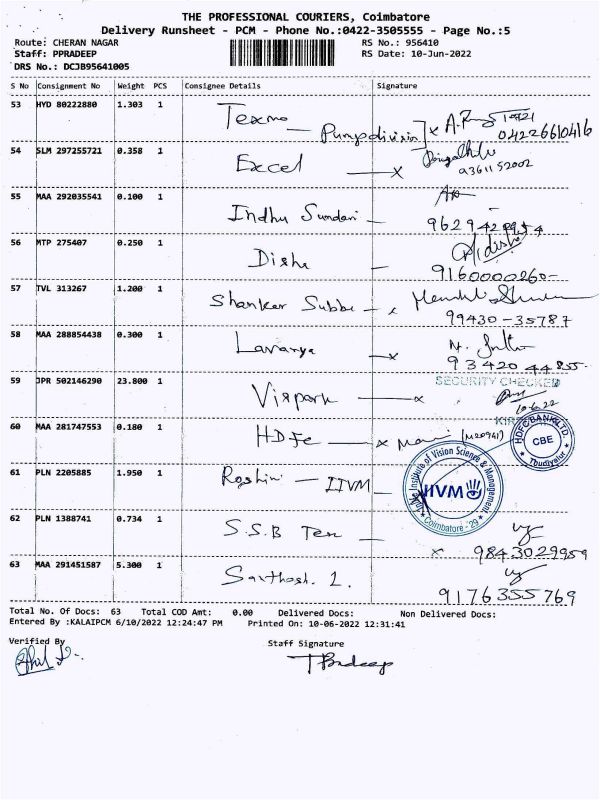 THE PROFESSIONAL COURIERS, Coimbatore
Delivery Runsheet - PCM - Phone No.:0422-3505555 - Page No.:5
Route: CHERAN NAGAR RS No.: 956410
Staff: PPRADEEP RS Date: 10-Jun-2022
DRS No.: DCJB95641005
S No Consignment No Weight PCS Consignee Details Signature
53 HYD 80222880 1.303 1 Texmo - Pumpdivision 04226610416
54 SLM 297255721 0.358 1 Excel x 9361152002
55 MAA 292035541 0.100 1 Indhu Sundari -
56 MTP 275407 0.250 1 Disha - 9160000260
57 TVL 313267 1.200 1 Shanker Subbu - x 99430-35787
58 MAA 288854438 0.300 1 Lavanya x 93420 44855
59 JPR 502146290 23.800 1 Virpark x SECURITY CHECKED 10.6.22
60 MAA 281747553 0.180 1 HDFC x HDFC BANK LTD. CBE
61 PLN 2205885 1.950 1 Roshini - IIVM Institute of Vision Science & Management IIVM Coimbatore - 29
62 PLN 1388741 0.734 1 S.S.B Tex - x 9843029959
63 MAA 291451587 5.300 1 Santhosh. L. 9176355769
Total No. Of Docs: 63 Total COD Amt: 0.00 Delivered Docs: Non Delivered Docs:
Entered By :KALAIPCM 6/10/2022 12:24:47 PM Printed On: 10-06-2022 12:31:41
Verified By Staff Signature
T Pradeep